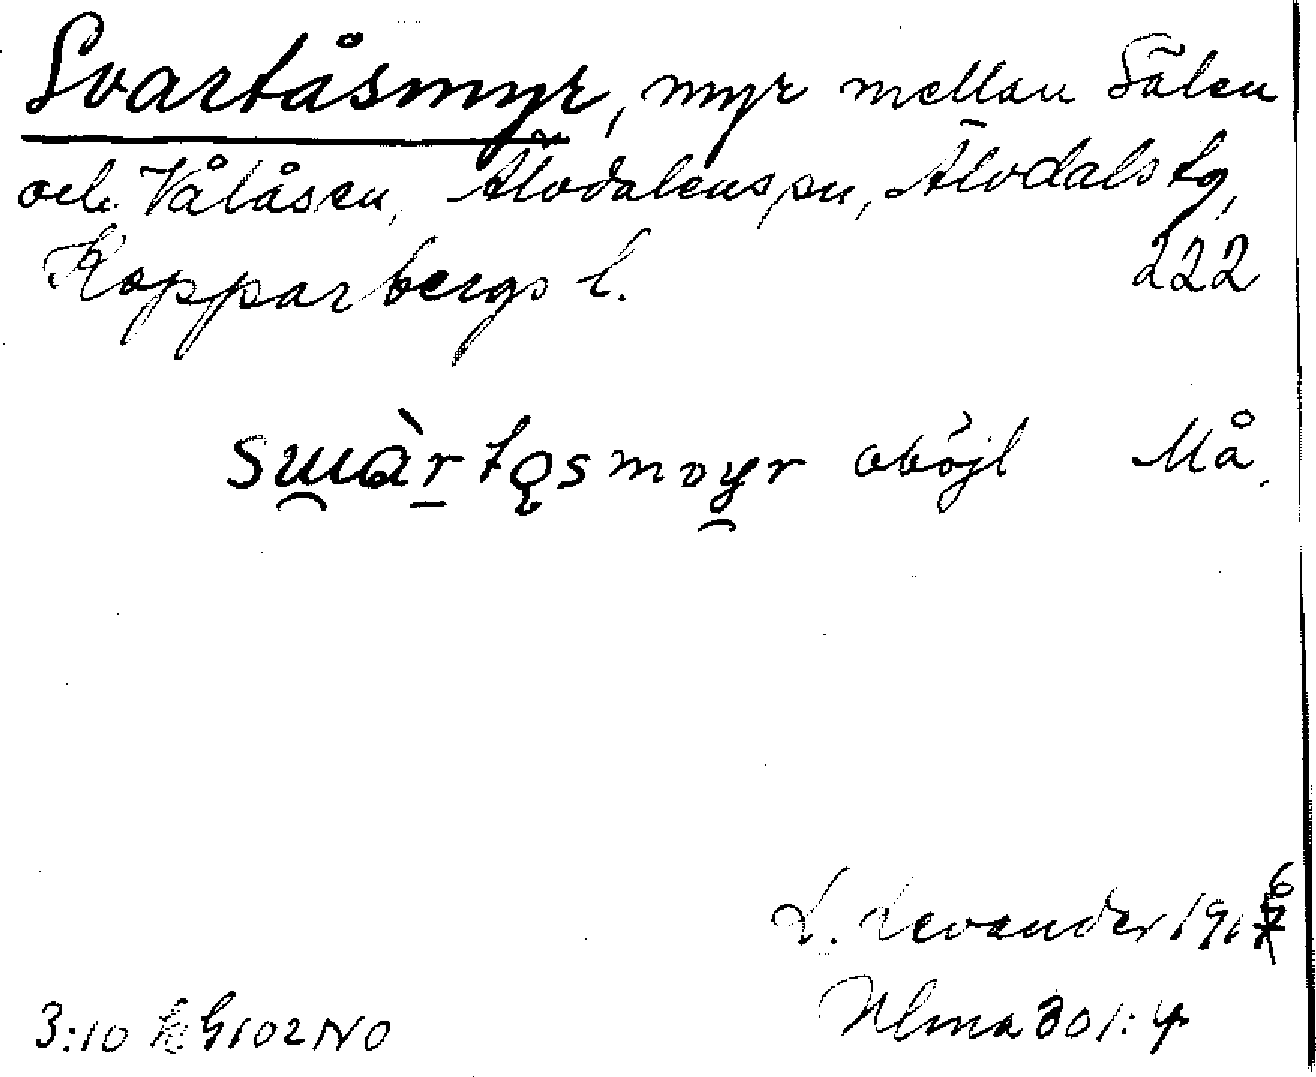 Svartåsmyr, myr mellan Sälen
och Våläsen, Älvdalens sn, Älvdals tg,
Kopparbergs l. 222
obojl Må.
L. Levander 1916
Ulma 301:4
3:10 k G102NO